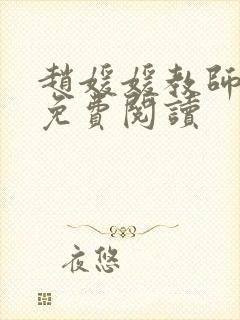 趙媛媛教師
免費閱讀
夜悠